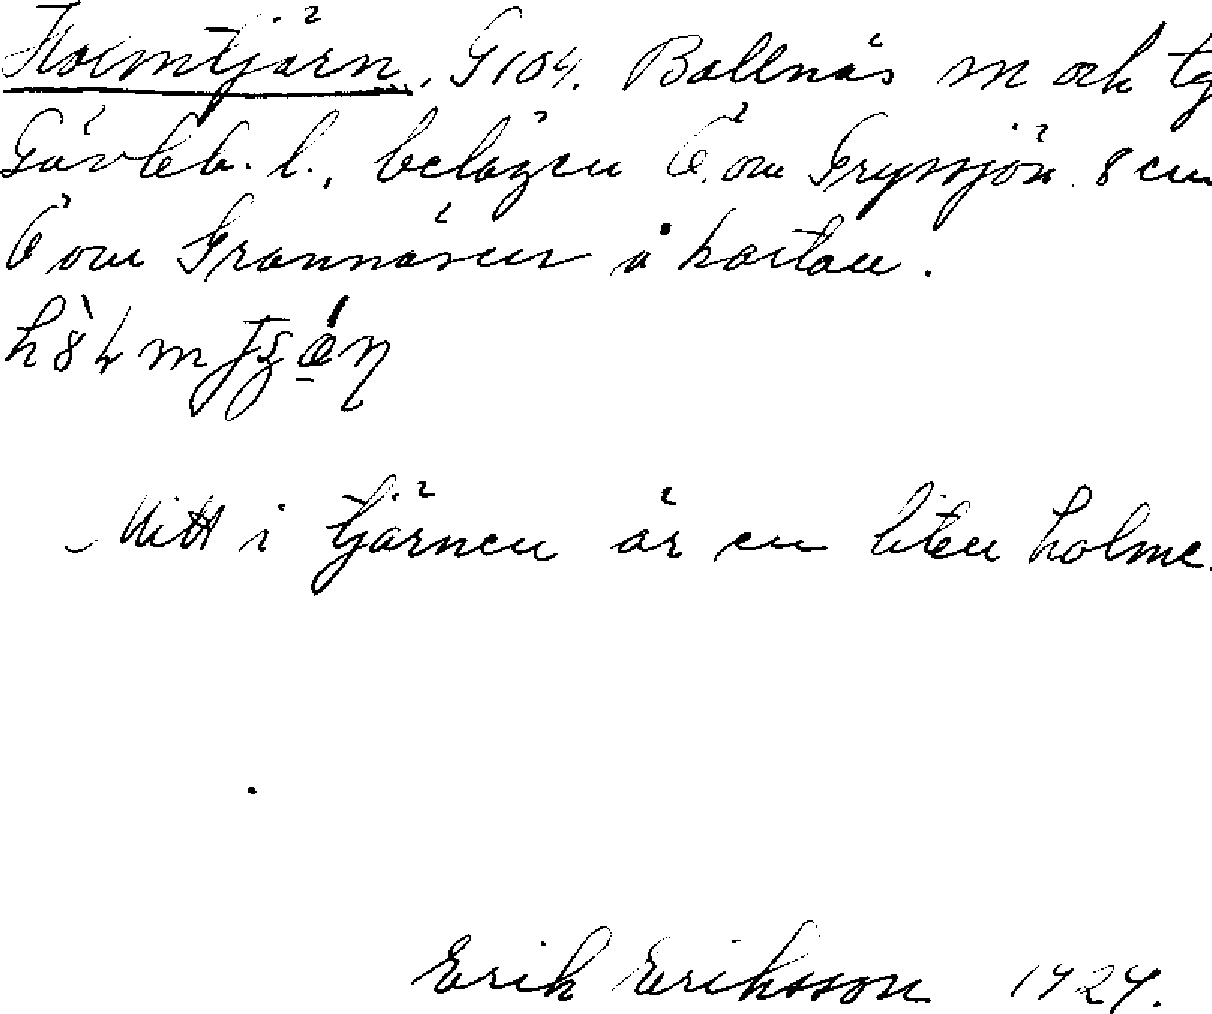 Holmtjärn, G 104. Bollnäs sn och tg
Gävleb. l., belägen Ö. om Gryssjön 8 cm
Ö om Grannäsen å kartan.
Mitt i tjärnen är en liten holme.
Erik Eriksson 1929.